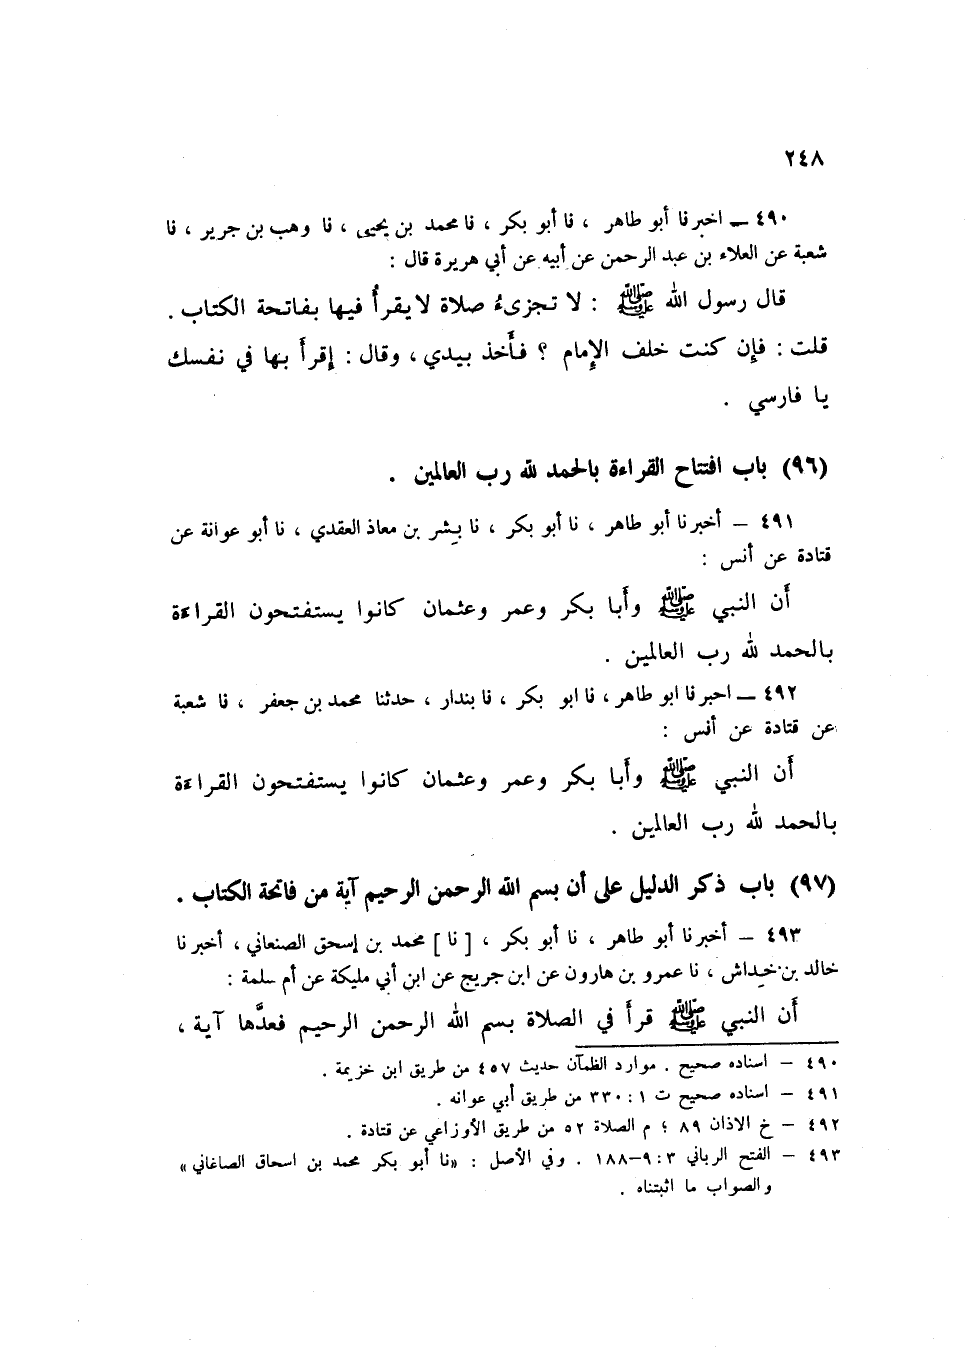 ٢٤٨
٤٩٠ ــ اخبرنا أبو طاهر ، نا أبو بكر ، نا محمد بن يحيى ، نا وهب بن جرير ، نا
شعبة عن العلاء بن عبد الرحمن عن أبيه عن أبي هريرة قال :
قال رسول الله ﷺ : لا تجزىءُ صلاة لا يقرأُ فيها بفاتحة الكتاب .
قلت : فإن كنت خلف الإمام ؟ فأَخذ بيدي ، وقال : إقرأَ بها في نفسك
يا فارسي .
(٩٦) باب افتتاح القراءة بالحمد لله رب العالمين .
٤٩١ – أخبرنا أبو طاهر ، نا أبو بكر ، نا بشر بن معاذ العقدي ، نا أبو عوانة عن
قتادة عن أنس :
أَن النبي ﷺ وأَبا بكر وعمر وعثمان كانوا يستفتحون القراءة
بالحمد لله رب العالمين .
٤٩٢ ــ اخبرنا ابو طاهر ، نا ابو بكر ، نا بندار ، حدثنا محمد بن جعفر ، نا شعبة
عن قتادة عن أنس :
أَن النبي ﷺ وأَبا بكر وعمر وعثمان كانوا يستفتحون القراءة
بالحمد لله رب العالمين .
(٩٧) باب ذكر الدليل على أن بسم الله الرحمن الرحيم آية من فاتحة الكتاب .
٤٩٣ – أخبرنا أبو طاهر ، نا أبو بكر ، [ نا ] محمد بن إسحق الصنعاني ، أخبرنا
خالد بن خيداش ، نا عمرو بن هارون عن ابن جريج عن ابن أبي مليكة عن أم سلمة :
أَن النبي ﷺ قرأَ في الصلاة بسم الله الرحمن الرحيم فعدَّها آية ،
٤٩٠ – اسناده صحيح . موارد الظمآن حديث ٤٥٧ من طريق ابن خزيمة .
٤٩١ – اسناده صحيح ت ١ : ٣٣٠ من طريق أبي عوانه .
٤٩٢ – خ الاذان ٨٩ ؛ م الصلاة ٥٢ من طريق الأوزاعي عن قتادة .
٤٩٣ – الفتح الرباني ٣ : ٩–١٨٨ . وفي الأصل : «نا أبو بكر محمد بن اسحاق الصاغاني»
والصواب ما اثبتناه .